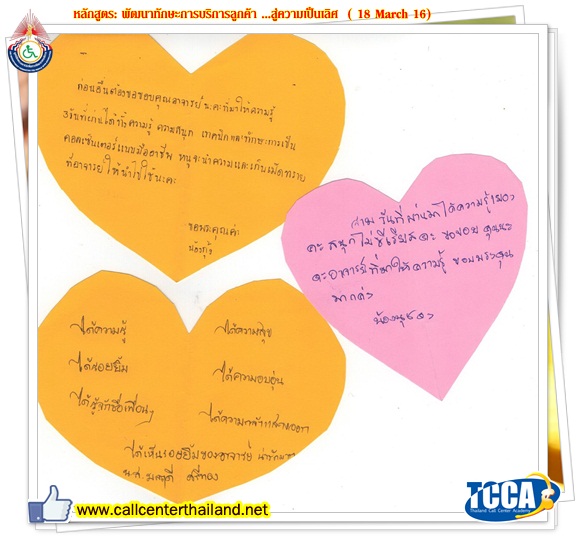 หลักสูตร: พัฒนาทักษะการบริการลูกค้า ...สู่ความเป็นเลิศ ( 18 March 16)
ก่อนอื่นต้องขอขอบคุณอาจารย์นะคะที่มาให้ความรู้
3วันที่ผ่านได้ทั้งความรู้ ความสนุก เทคนิคและทักษะการเป็น
คอลเซ็นเตอร์แบบมืออาชีพ หนูจะนำความและเก็บเม็ดทราย
ที่อาจารย์ให้นำไปใช้นะคะ
ขอบพระคุณค่ะ
น้องกุ้ง
สาม วันที่ผ่านมาได้ความรู้เยอะ
คะ สนุกไม่ซีเรียสคะ ขอขอบคุณนะ
คะอาจารย์ที่มาให้ความรู้ ขอบพระคุณ
มากค่ะ
ได้ความรู้
ได้ความสุข
ได้รอยยิ้ม
ได้ความอบอุ่น
ได้รู้จักชื่อเพื่อนๆ
ได้ความกล้าแสดงออก
ได้เห็นรอยยิ้มของอาจารย์
น.ส.
www.callcenterthailand.net
TCCA
Thailand Call Center Academy